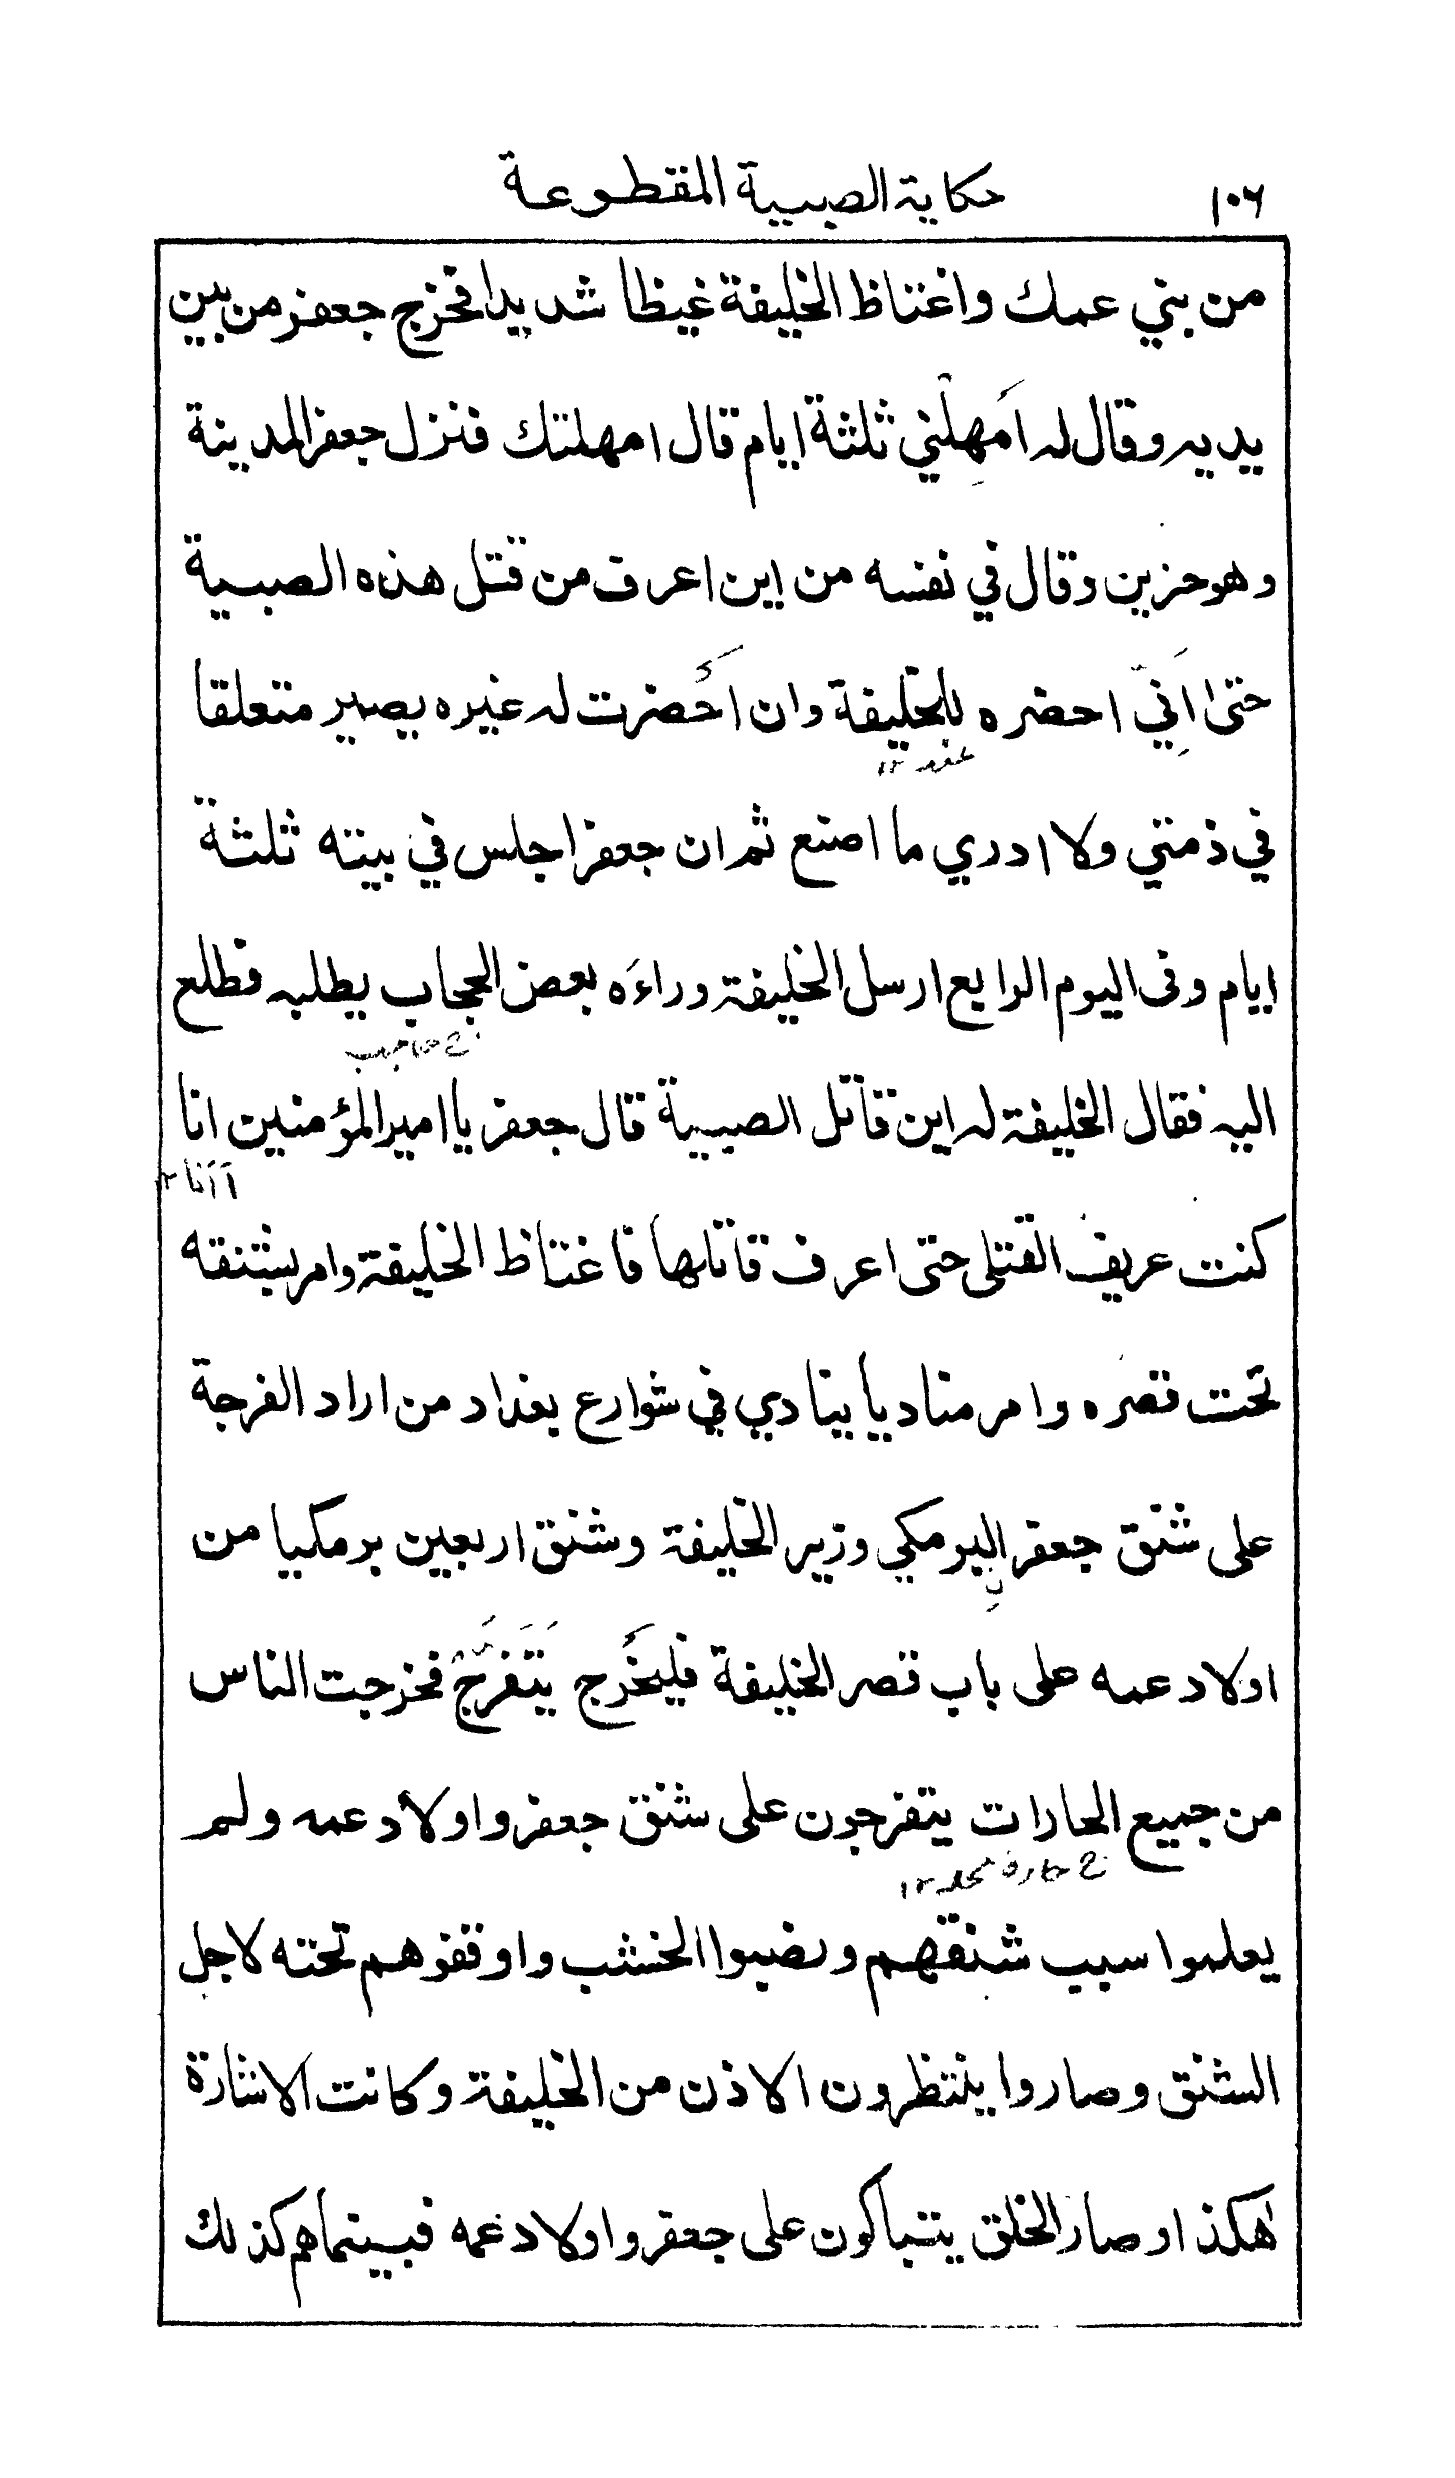 ١٠٦ حكاية الصبية المقطوعة
من بني عمك واغتاظ الخليفة غيظا شديدا فخرج جعفر من بين
يديه وقال له امهلني ثلثة ايام قال امهلتك فنزل جعفر المدينة
وهو حزين وقال في نفسه من اين اعرف من قتل هذه الصبية
حتى اني احضره للخليفة وان احضرت له غيره يصير متعلقا
في ذمتي ولا ادري ما اصنع ثم ان جعفرا جلس في بيته ثلثة
ايام وفى اليوم الرابع ارسل الخليفة وراءه بعض الحجاب يطلبه فطلع
اليه فقال الخليفة له اين قاتل الصبية قال جعفر يا امير المؤمنين انا
كنت عريف القتلى حتى اعرف قاتلها فاغتاظ الخليفة وامر بشنقه
تحت قصره وامر مناديا ينادي في شوارع بغداد من اراد الفرجة
على شنق جعفر البرمكي وزير الخليفة وشنق اربعين برمكيا من
اولاد عمه على باب قصر الخليفة فليخرج يتفرج فخرجت الناس
من جميع الحارات يتفرجون على شنق جعفر واولاد عمه ولم
يعلموا سبب شنقهم ونصبوا الخشب واوقفوهم تحته لاجل
الشنق وصاروا ينتظرون الاذن من الخليفة وكانت الاشارة
هكذا وصار الخلق يتباكون على جعفر واولاد عمه فبينما هم كذلك